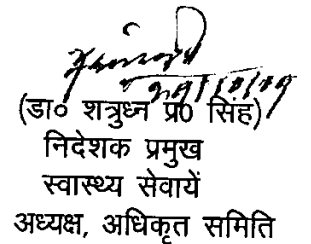 (डा० शत्रुध्न प्र० सिंह)
निदेशक प्रमुख
स्वास्थ्य सेवायें
अध्यक्ष, अधिकृत समिति